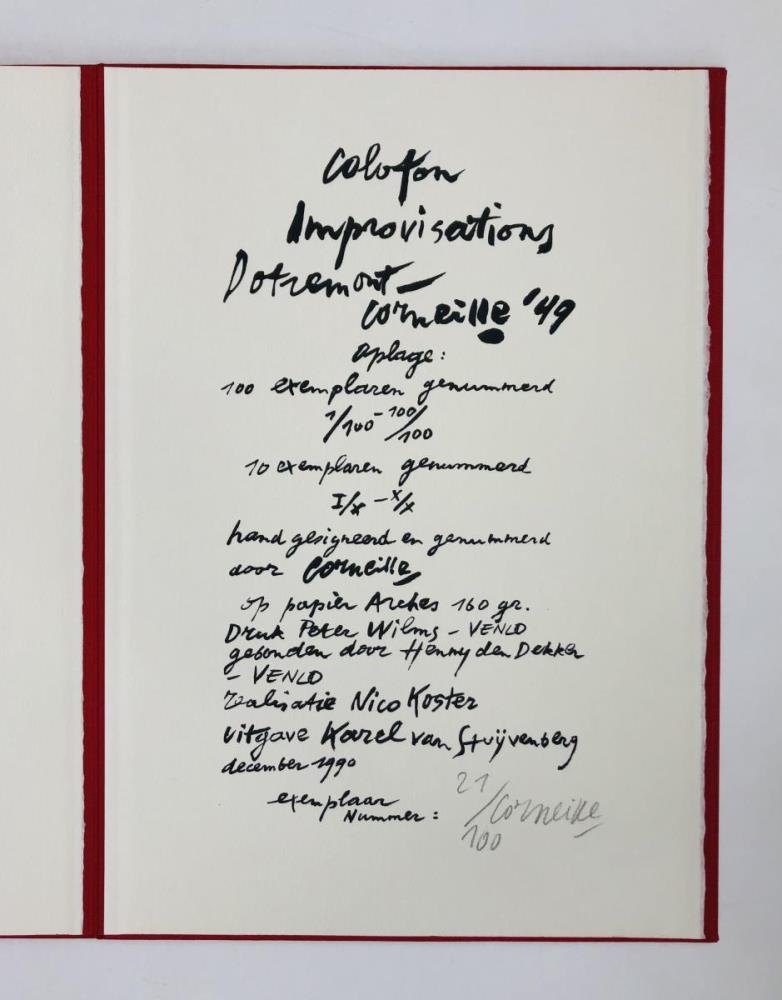 Colofon
Improvisations
Dotremont –
Corneille '49
oplage:
100 exemplaren genummerd
1/100 - 100/100
10 exemplaren genummerd
I/X - X/X
hand gesigneerd en genummerd
door Corneille
op papier Arches 160 gr.
Druk Peter Wilms - VENLO
gebonden door Henny den Dekker
- VENLO
realisatie Nico Koster
uitgave Karel van Stuijvenberg
december 1990
exemplaar
Nummer: 21/100 Corneille